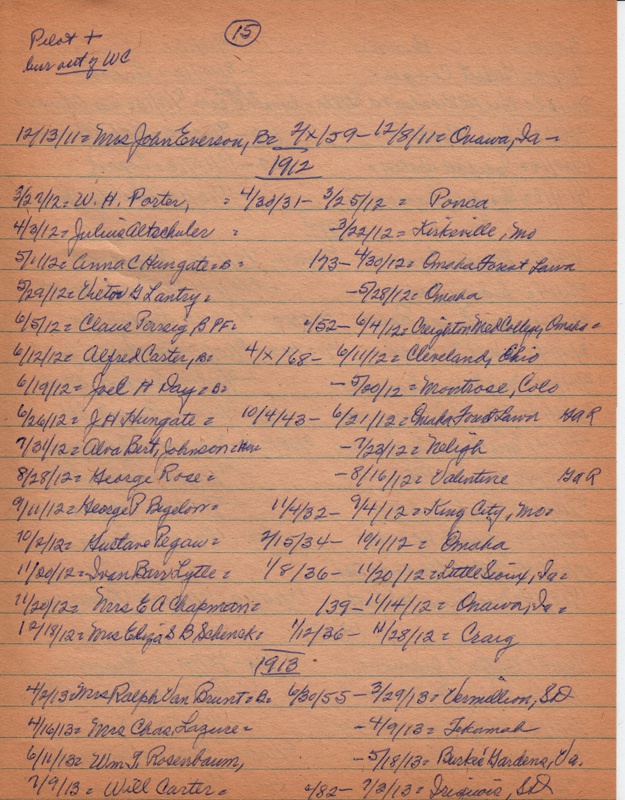 Pilot +
bur out of WC
15
12/13/11 = Mrs John Everson, B= 7/x/59 - 12/8/11 = Onawa, Ia -
1912
3/27/12 = W. H. Porter, = 4/30/31 - 3/25/12 = Ponca
4/3/12 = Julius Altschuler = -3/22/12 = Kirksville, Mo
5/1/12 = Anna C Hungate = B= 173 - 4/30/12 = Omaha Forest Lawn
5/29/12 = Victor G Lantry = -5/28/12 = Omaha
6/5/12 = Claus B PF = /52 - 6/4/12 = Creighton Med College, Omaha =
6/12/12 = Alfred Carter, B= 4/x/68 - 6/11/12 = Cleveland, Ohio
6/19/12 = Joel H Day = B= - 5/00/12 = Montrose, Colo
6/26/12 = J H Hungate = 10/4/43 - 6/21/12 = Omaha Forest Lawn GaR
7/31/12 = Alva Bert, Johnson = -7/23/12 = Neligh
8/28/12 = George Rose = -8/16/12 = Valentine GaR
9/11/12 = George P Bigelow = 11/4/32 - 9/4/12 = King City, Mo =
10/2/12 = Gustave Pegau = 2/15/34 - 10/1/12 = Omaha
11/00/12 = Ivan Barr Lytle = 1/8/36 - 11/20/12 = Little Sioux, Ia =
11/20/12 = Mrs E A Chapman = /39 - 11/14/12 = Onawa, Ia =
12/18/12 = Mrs Eliza S B Schenck = 1/12/36 - 11/28/12 = Craig
1913
4/2/13 Mrs Ralph Van Brunt = B= 6/30/55 - 3/29/13 = Vermillion, SD
4/16/13 = Mrs Chas, Lazure = -4/9/13 = Tekamah
6/11/13 = Wm F. Rosenbaum, -5/18/13 = Burke Gardens, Va.
7/9/13 = Will Carter = /82 - 7/3/13 = Iriquois, SD